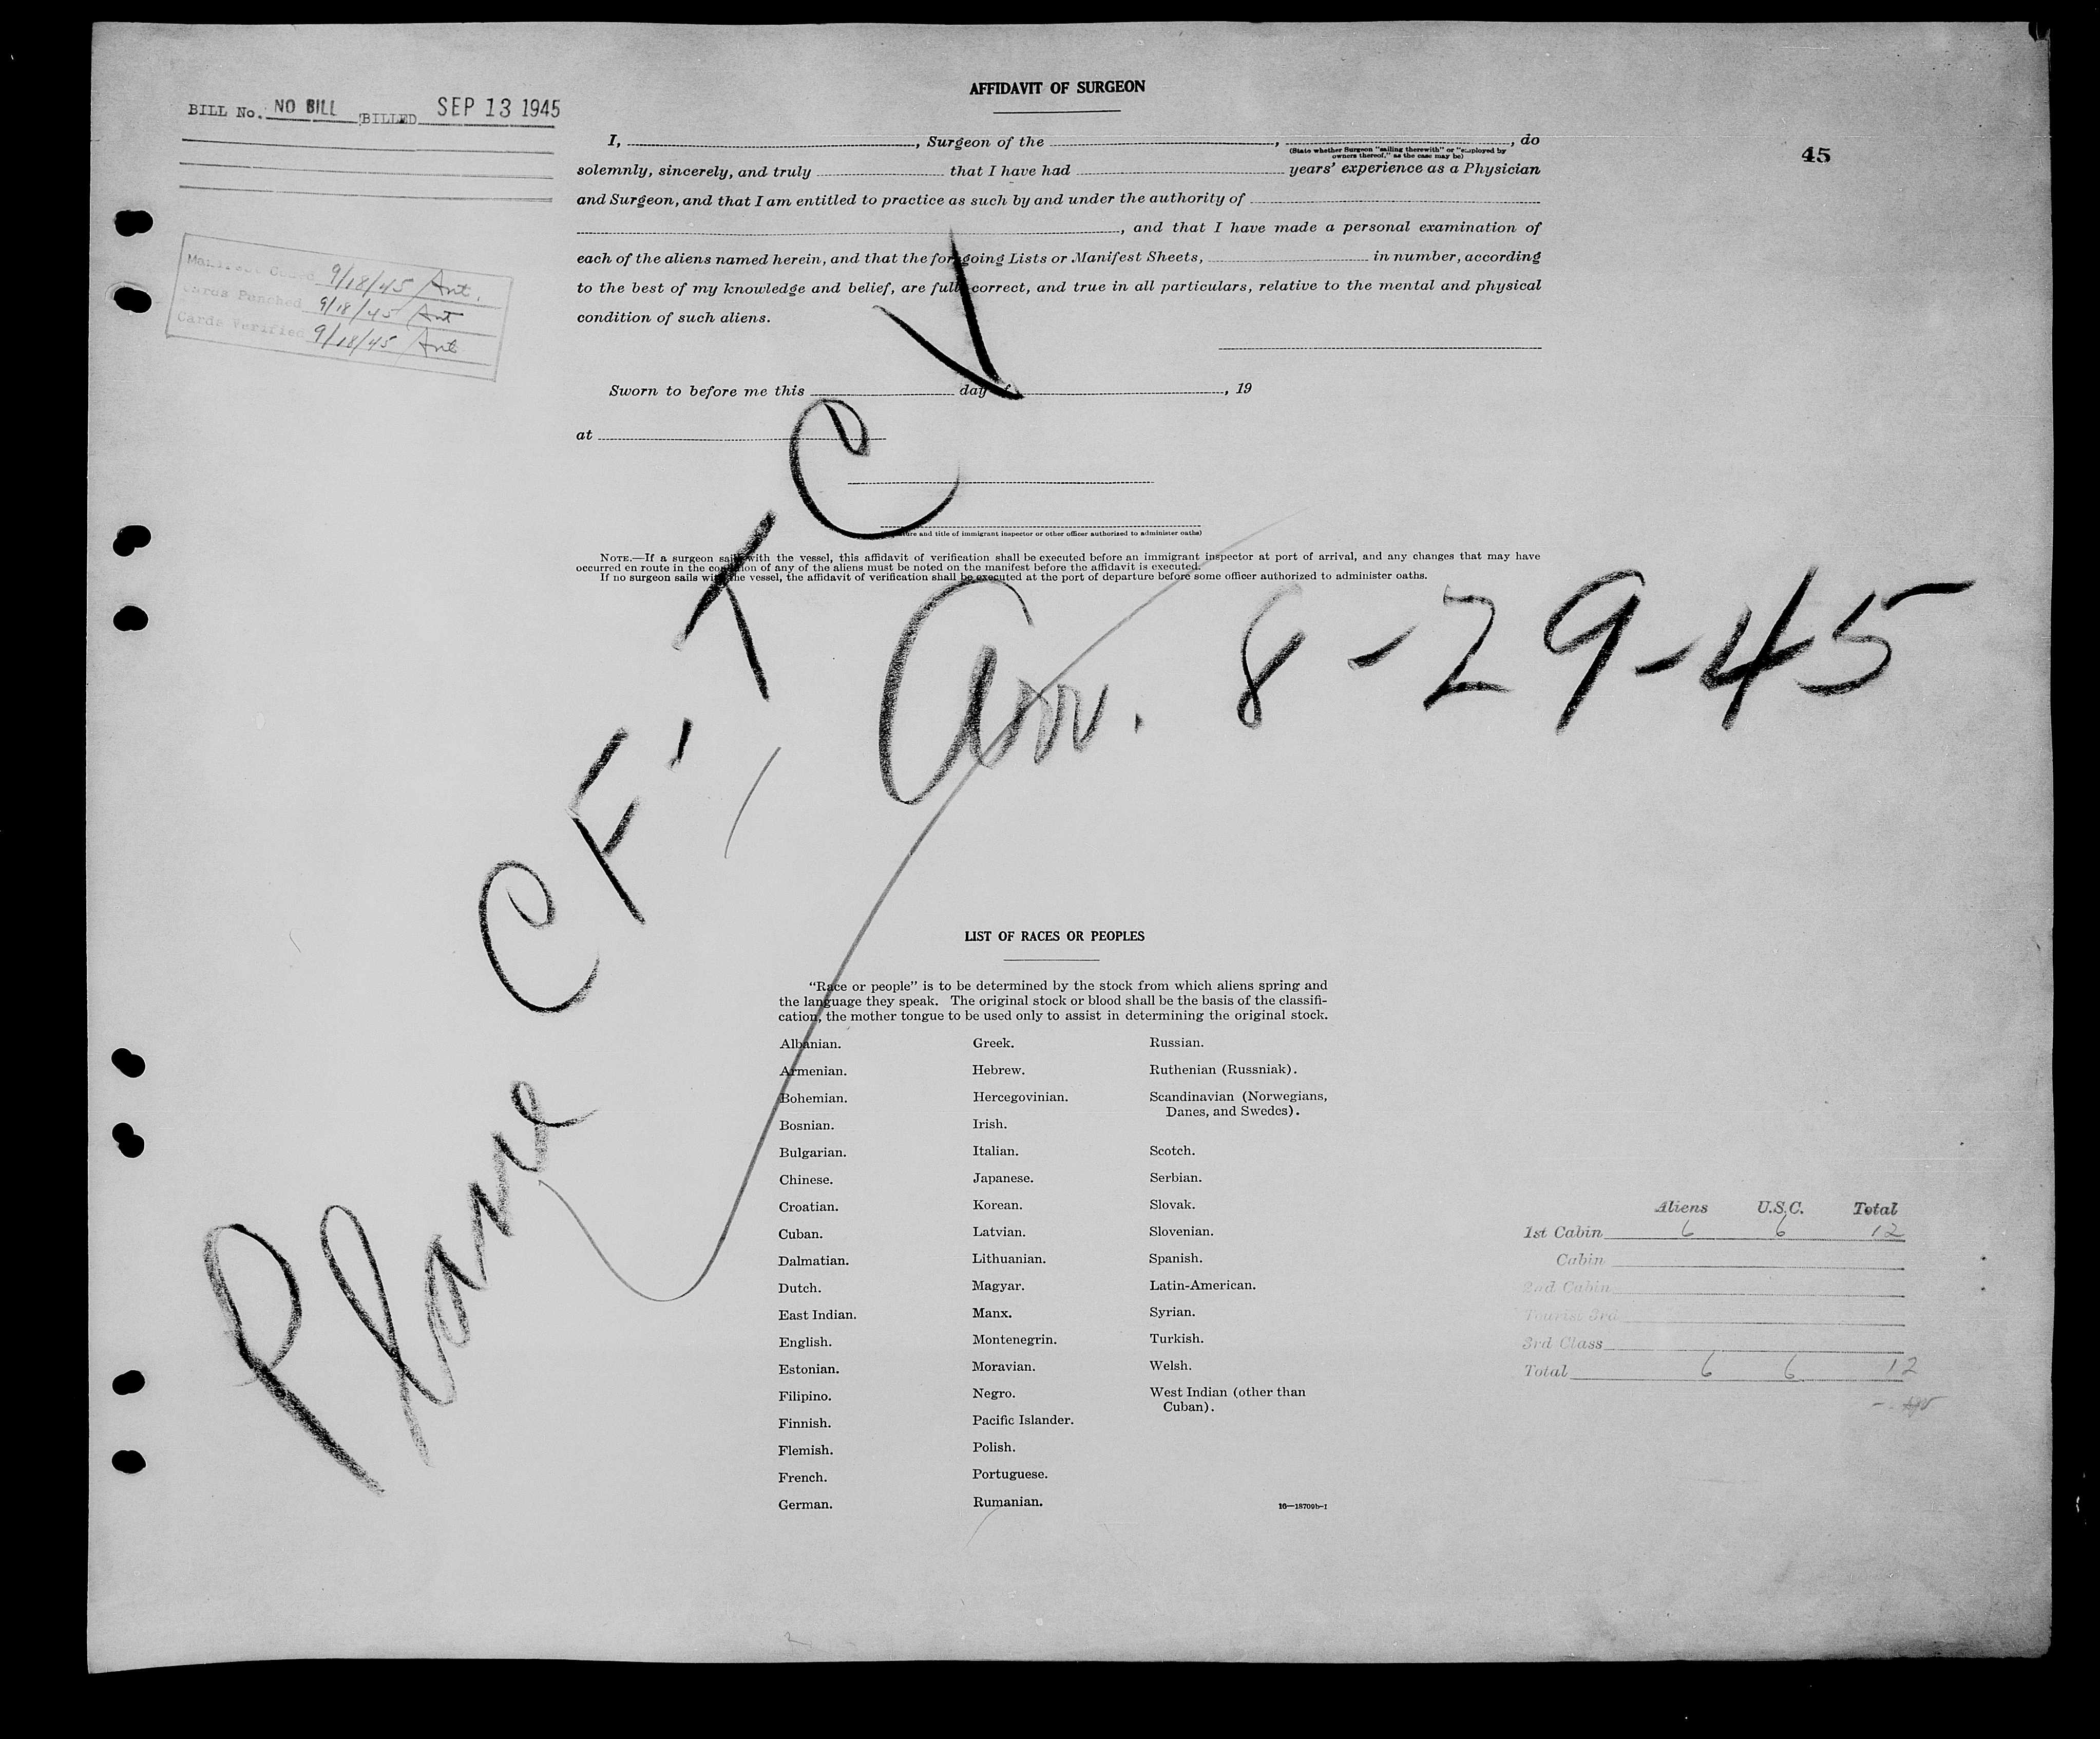 AFFIDAVIT OF SURGEON
BILL No. NO BILL BILLED SEP 13 1945
45
I, , Surgeon of the , , do
(State whether Surgeon "sailing therewith" or "employed by
owners thereof," as the case may be)
solemnly, sincerely, and truly that I have had years' experience as a Physician
and Surgeon, and that I am entitled to practice as such by and under the authority of
, and that I have made a personal examination of
each of the aliens named herein, and that the foregoing Lists or Manifest Sheets, in number, according
to the best of my knowledge and belief, are full, correct, and true in all particulars, relative to the mental and physical
condition of such aliens.
9/18/45
Cards Punched 9/18/45
Cards Verified 9/18/45
Sworn to before me this day of , 19
at
and title of immigrant inspector or other officer authorized to administer oaths)
NOTE.—If a surgeon sails with the vessel, this affidavit of verification shall be executed before an immigrant inspector at port of arrival, and any changes that may have
occurred en route in the condition of any of the aliens must be noted on the manifest before the affidavit is executed.
If no surgeon sails with the vessel, the affidavit of verification shall be executed at the port of departure before some officer authorized to administer oaths.
Plane CF-TCV
Arr. 8-29-45
LIST OF RACES OR PEOPLES
"Race or people" is to be determined by the stock from which aliens spring and
the language they speak. The original stock or blood shall be the basis of the classifi-
cation, the mother tongue to be used only to assist in determining the original stock.
Albanian.
Armenian.
Bohemian.
Bosnian.
Bulgarian.
Chinese.
Croatian.
Cuban.
Dalmatian.
Dutch.
East Indian.
English.
Estonian.
Filipino.
Finnish.
Flemish.
French.
German.
Greek.
Hebrew.
Hercegovinian.
Irish.
Italian.
Japanese.
Korean.
Latvian.
Lithuanian.
Magyar.
Manx.
Montenegrin.
Moravian.
Negro.
Pacific Islander.
Polish.
Portuguese.
Rumanian.
Russian.
Ruthenian (Russniak).
Scandinavian (Norwegians,
Danes, and Swedes).
Scotch.
Serbian.
Slovak.
Slovenian.
Spanish.
Latin-American.
Syrian.
Turkish.
Welsh.
West Indian (other than
Cuban).
16—18709b-1
Aliens U.S.C. Total
1st Cabin 6 6 12
Cabin
2nd Cabin
Tourist 3rd
3rd Class
Total 6 6 12